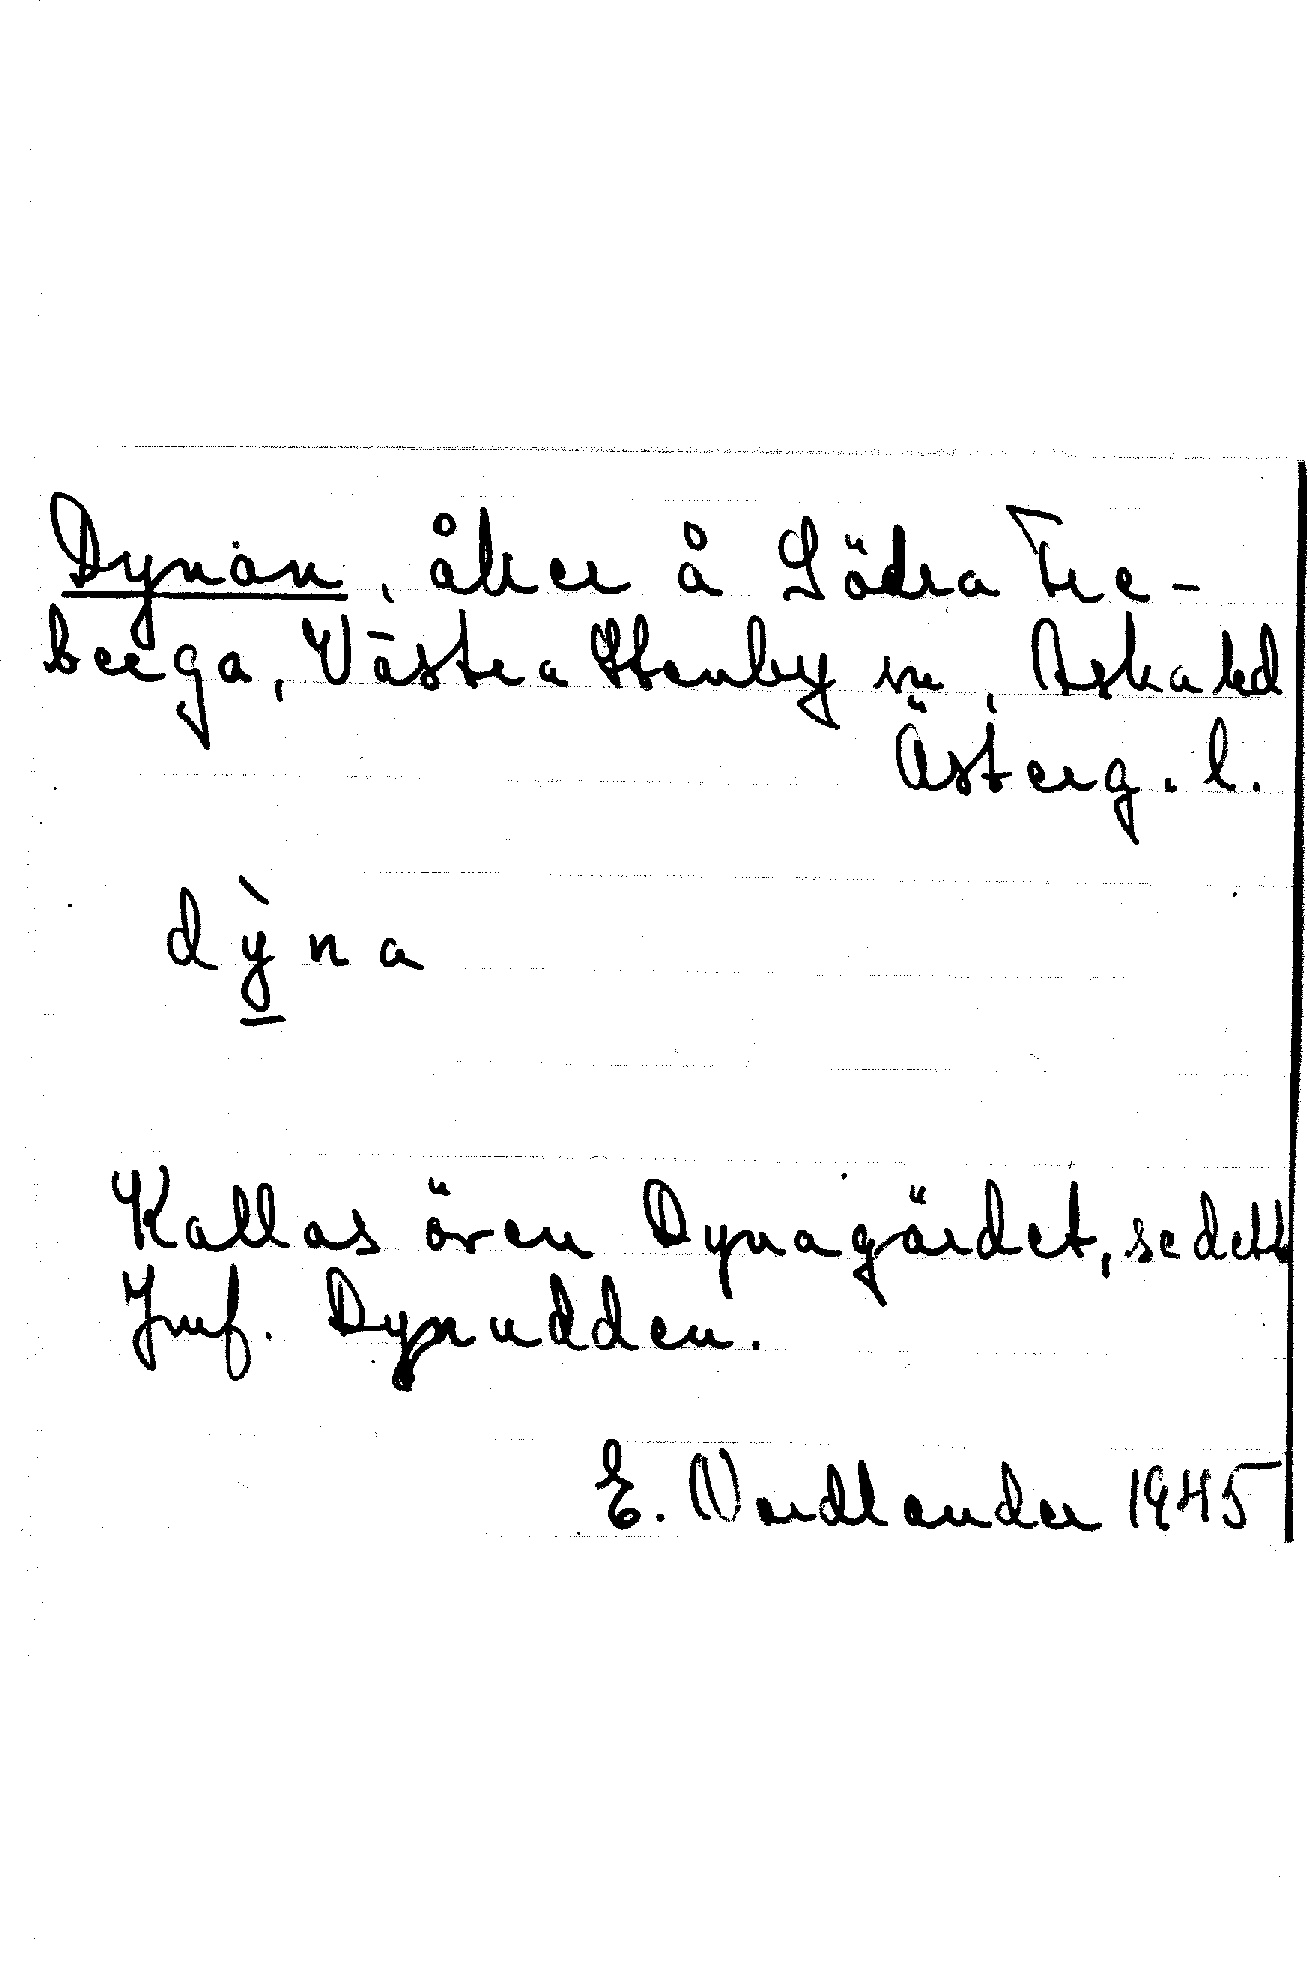 Dynan, åker å Södra Fre-
berga, Västra Stenby sn, Aska hd
Österg. l.
dỳna
Kallas även Dynagärdet, se detta
Jmf. Dynudden.
E. Nordlander 1945